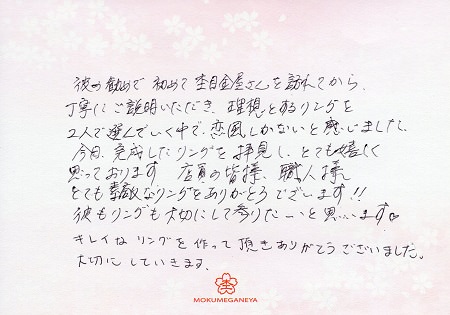 彼の勧めで初めて杢目金屋さんを訪れてから、
丁寧にご説明いただき、理想とするリングを
2人で選んでいく中で、恋風しかないと感じました。
今日、完成したリングを拝見し、とても嬉しく
思っております 店員の皆様、職人様
とても素敵なリングをありがとうございます!!
彼もリングも大切にして参りたいと思います♡
キレイなリングを作って頂きありがとうございました。
大切にしていきます。
MOKUMEGANEYA